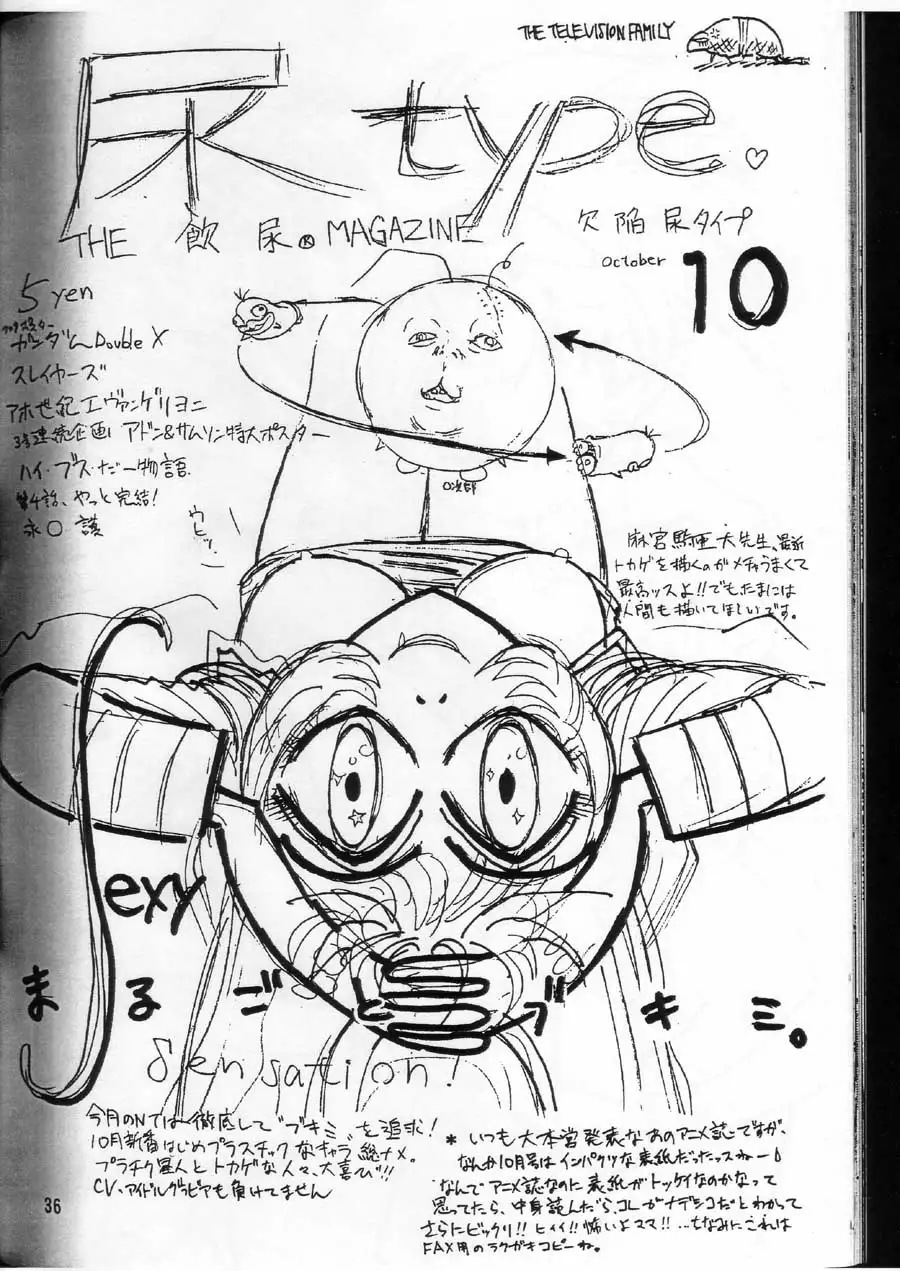 THE TELEVISION FAMILY
尿 type.♡
THE 飲尿 MAGAZINE
欠陥尿タイプ
October 10
5 yen
ガンダム Double X
スレイヤーズ
アホ世紀エヴァンゲリヨニ
3号連続企画 アドン&サムソン特大ポスター
ハイ・ブス・だー物語
第4話、やっと完結!
永○護
ウヒヒッ
○次郎
麻宮騎亜大先生、最近
トカゲを描くのがメチャうまくて
最高ッスよ!!でもたまには
人間も描いてほしいです。
Sexy
まるごとブキミ。
Sensation!
今月のNTは徹底して“ブキミ”を追求!
10月新番はじめプラスチックなキャラ総ナメ。
プラチク星人とトカゲな人々、大喜び!!
CV、アイドルグラビアも負けてません
* いつも大本営発表なあのアニメ誌ですが、
なんか10月号はインパクツな表紙だったッスねー
なんでアニメ誌なのに表紙がトッケイなのかなって
思ってたら、中身読んだら、コレがナデシコだとわかって
さらにビックリ!!ヒィイ!!怖いよママ!!…ちなみにこれは
FAX用のラクガキコピーね。
36